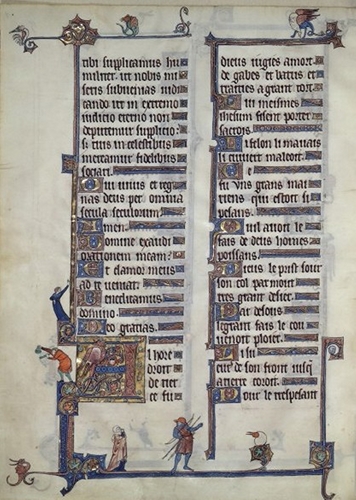 tibi supplicamus hu
militer. ut nobis mi
seris subuenias iudi
cando. ut in extremo
iudicio eterno non
deputemur supplicio:
si tuis in celestibus
mereamur fidelibus
sociari.
Qui uiuis et reg
nas deus per omnia
secula seculorum.
Amen.
Domine exaudi
orationem meam:
Et clamor meus
ad te ueniat.
Benedicamus
domino.
Deo gratias.
A l'hore
de tier
ce fu
dieus iugies a mort
de gabes et batus et
traities a grant tort.
Lui meismes
ihesum fisent porter
sa crois
Li felon li mauais
li cuiuert maleoit.
Fu uns grans mai
riens qui estoit si
pesans.
fais de deus homes
poissans.
Dieus le prist sour
son col par mout
tres grant desier.
Par desous
le grant fais le cou
uenoit ploier.
de son front iusq
a terre coroit.
Dont le trespesant